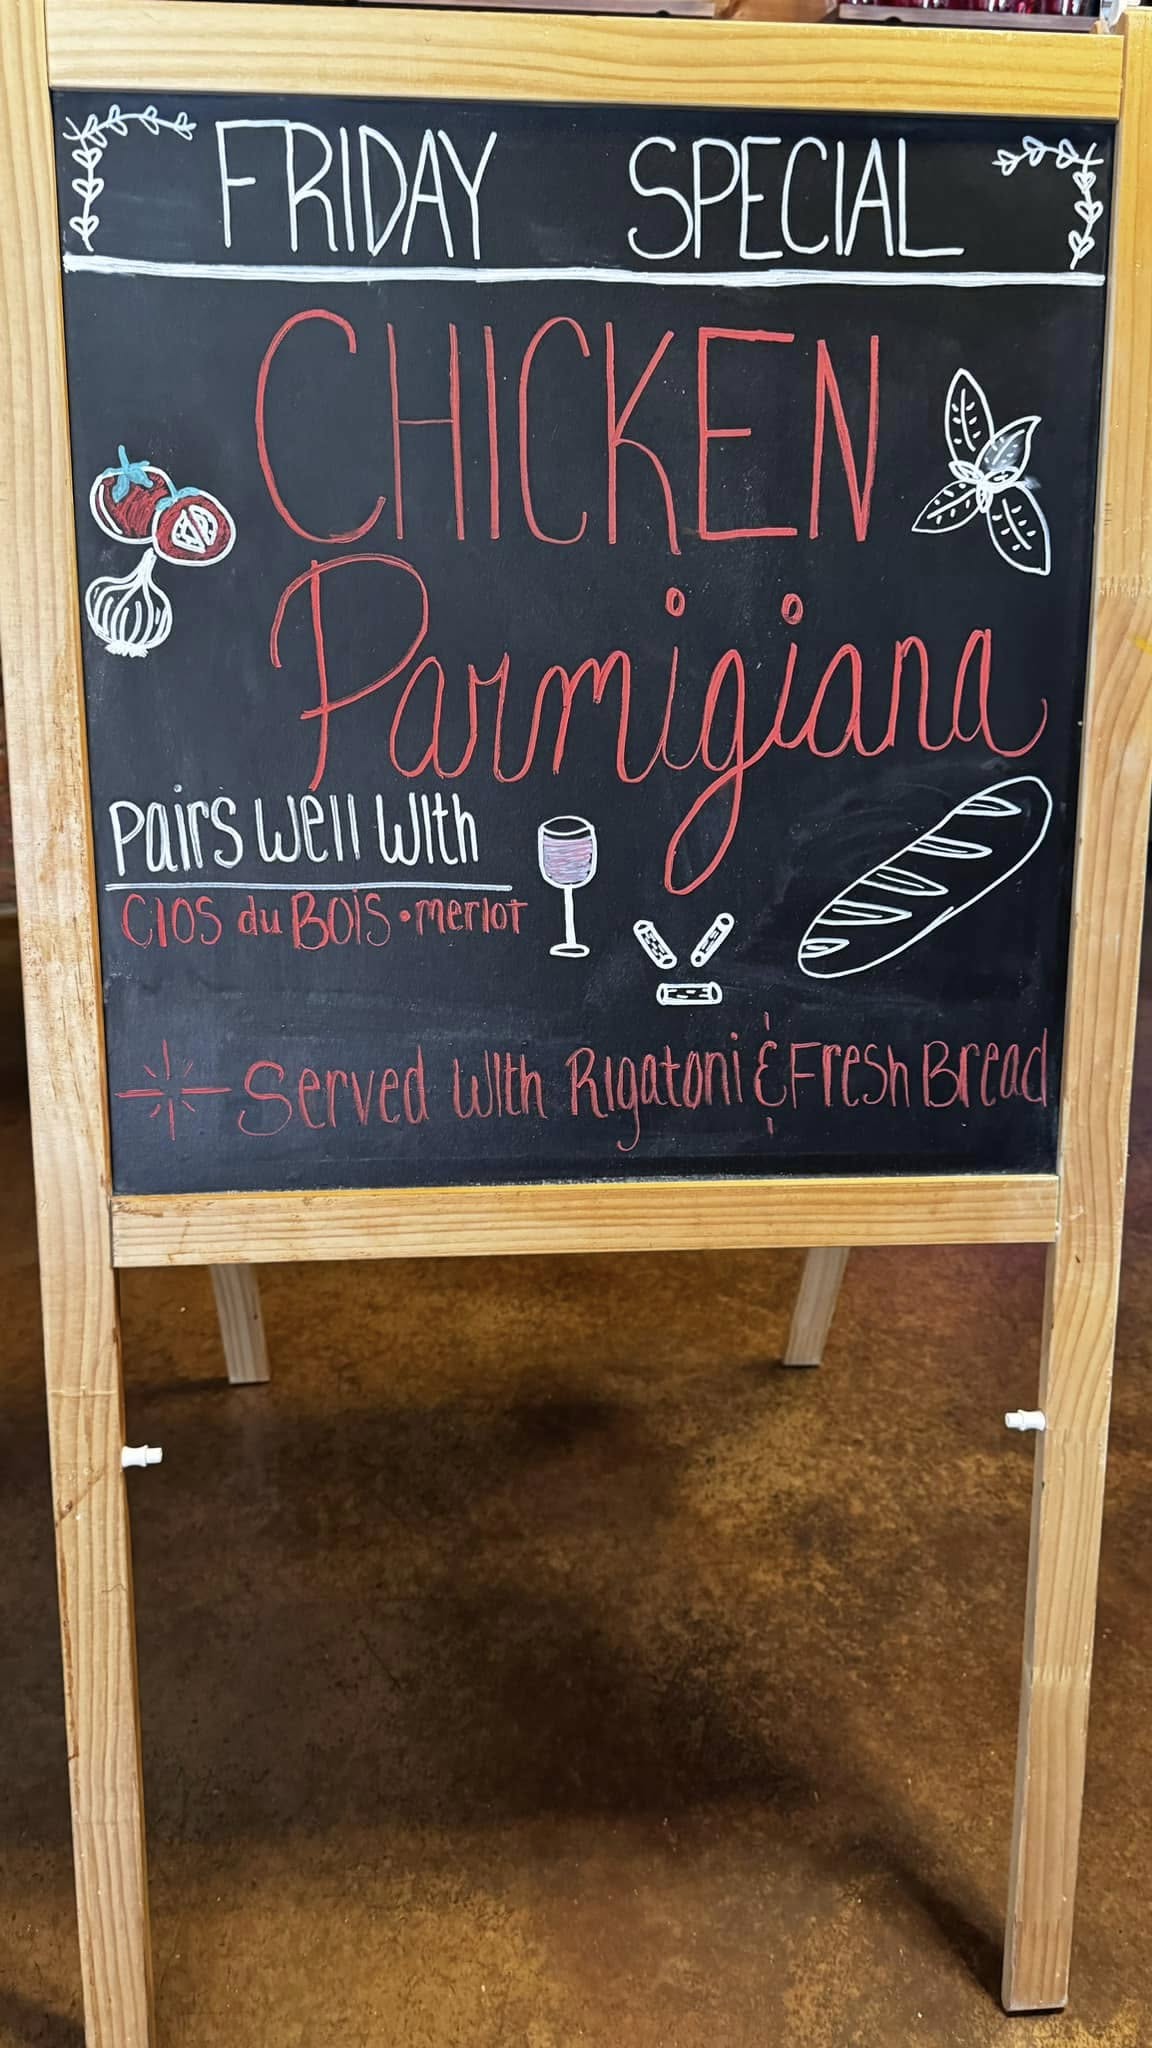 FRIDAY SPECIAL
CHICKEN
Parmigiana
Pairs Well With
Clos du Bois • merlot
Served With Rigatoni & Fresh Bread